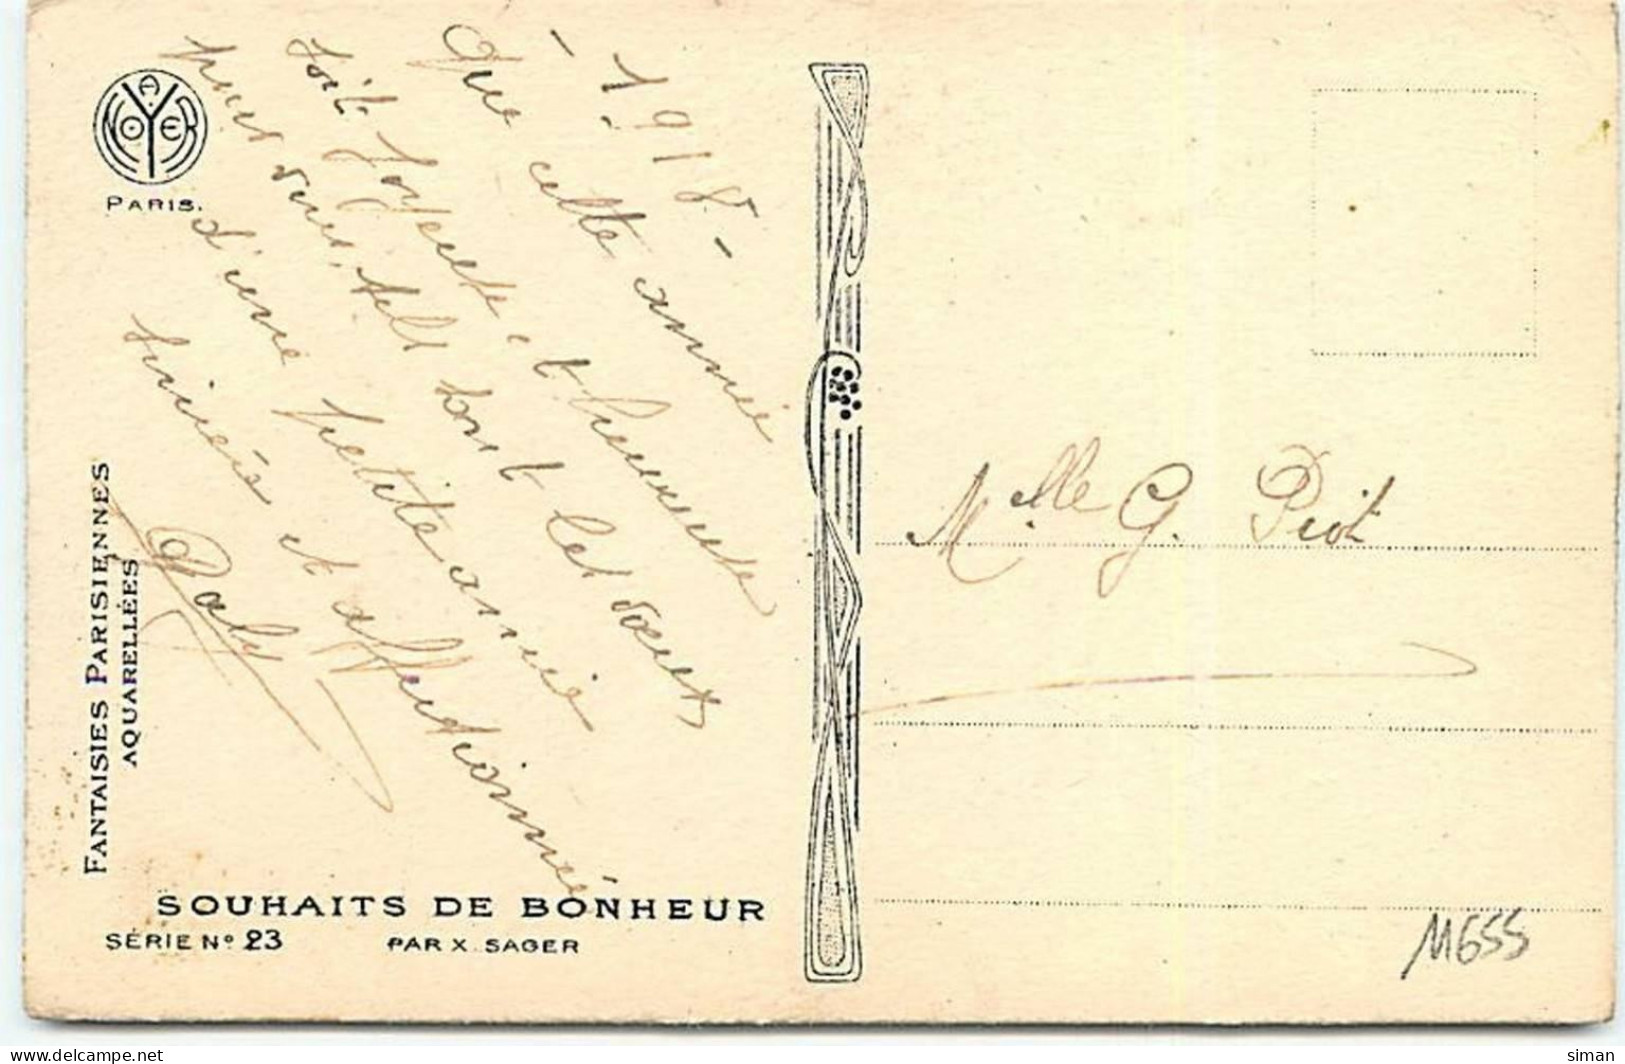 A. NOYER
PARIS.
FANTAISIES PARISIENNES
AQUARELLÉES
- 1918 -
Que cette année
soit joyeuse et heureuse
pour vous, tels sont les vœux
d'une petite amie
sincère et affectionnée
SOUHAITS DE BONHEUR
SÉRIE Nº 23 PAR X. SAGER
Melle G. Piot
M655
siman
delcampe.net